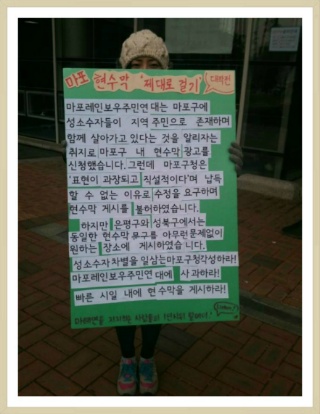 마포 현수막 '제대로 걸기' 대작전
마포레인보우주민연대는 마포구에
성소수자들이 지역 주민으로 존재하며
함께 살아가고 있다는 것을 알리자는
취지로 마포구 내 현수막 광고를
신청했습니다. 그런데 마포구청은
'표현이 과장되고 직설적이다'며 납득
할 수 없는 이유로 수정을 요구하며
현수막 게시를 불허하였습니다.
하지만 은평구와 성북구에서는
동일한 현수막 문구를 아무런 문제없이
원하는 장소에 게시하였습니다.
성소수자 차별을 일삼는 마포구청 각성하라!
마포레인보우주민연대에 사과하라!
빠른 시일 내에 현수막을 게시하라!
마레연을 지지하는 사람들의 1인시위